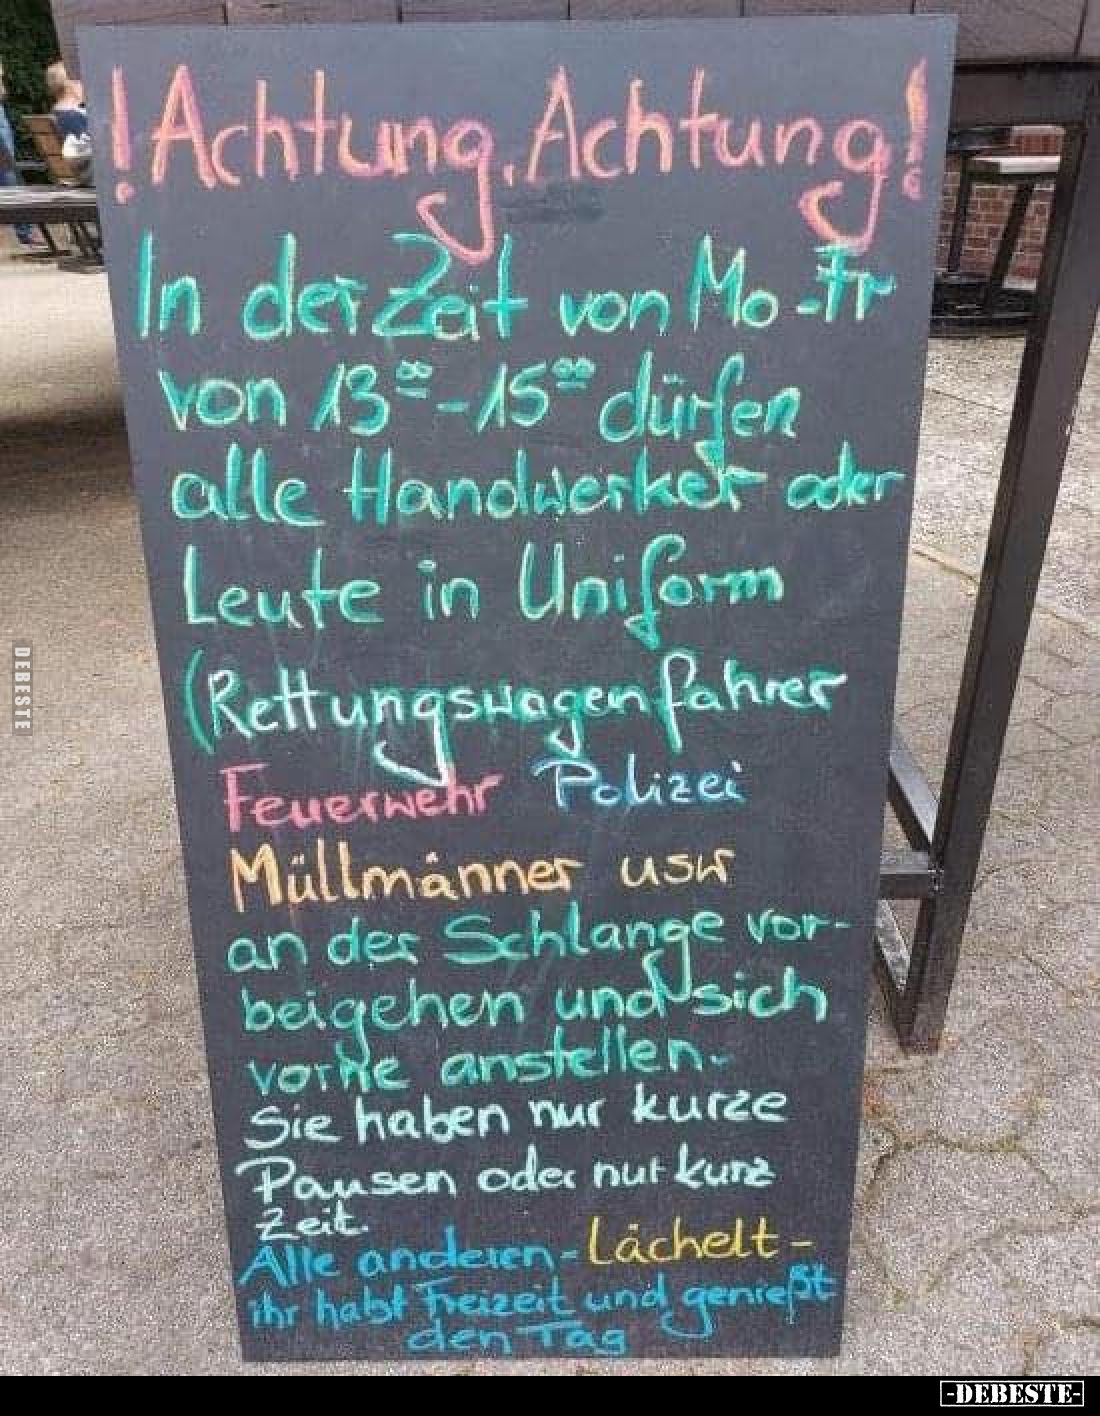 !Achtung, Achtung!
In der Zeit von Mo-Fr
von 13⁰⁰-15⁰⁰ dürfen
alle Handwerker oder
Leute in Uniform
(Rettungswagenfahrer
Feuerwehr Polizei
Müllmänner usw
an der Schlange vor-
beigehen und sich
vorne anstellen.
Sie haben nur kurze
Pausen oder nur kurz
Zeit.
Alle anderen - Lächelt -
ihr habt Freizeit und genießt
den Tag
DEBESTE
-DEBESTE-